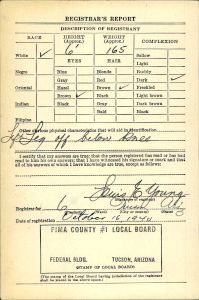 REGISTRAR'S REPORT
DESCRIPTION OF REGISTRANT
RACE HEIGHT (Approx.) WEIGHT (Approx.) COMPLEXION
White ✓ 6' 165 Sallow
EYES HAIR Light
Negro Blue Blonde Ruddy
Gray Red Dark ✓
Oriental Hazel Brown ✓ Freckled
Brown ✓ Black Light brown
Indian Black Gray Dark brown
Bald Black
Filipino
Other obvious physical characteristics that will aid in identification
Leg off below knee
I certify that my answers are true; that the person registered has read or has had
read to him his own answers; that I have witnessed his signature or mark and that
all of his answers of which I have knowledge are true, except as follows:
Young
Registrar for 6 Ariz
(City or county) (State)
Date of registration October 16 1940
PIMA COUNTY #1 LOCAL BOARD
FEDERAL BLDG. TUCSON, ARIZONA
(STAMP OF LOCAL BOARD)
(The stamp of the Local Board having jurisdiction of the registrant
shall be placed in the above space.)